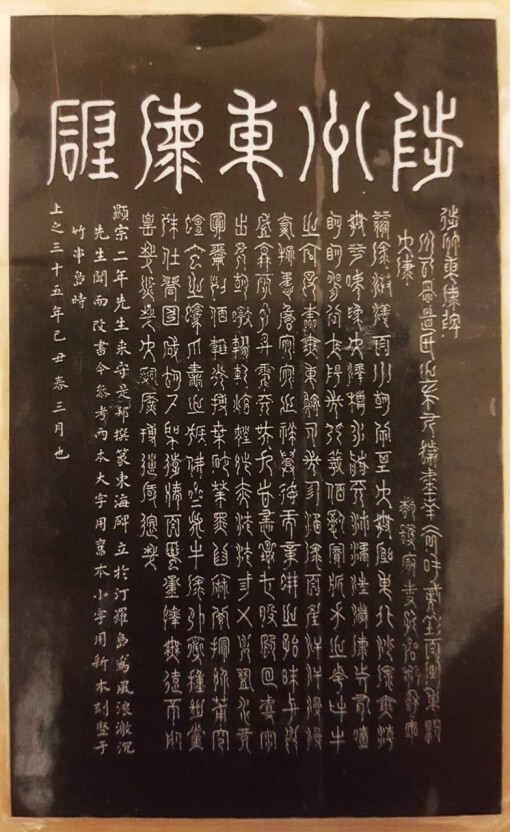 陟州東海碑
陟州東海碑
瀛海漭瀁百川朝宗其大無窮東北沙海無潮
無汐號爲大澤積水稽天浡潏汪濊海動有曀
明明暘谷太陽之門羲伯司賓析木之次牝牛
之宮日本無東鮫人之珍涵海百產汗汗漫漫
奇物譎詭宛宛之祥興德而章蚌之胎珠與月
盛衰旁氣昇霏天吳九首怪夔一股颷回且雨
出日朝暾轇軋炫熿紫赤滄滄三五月盈水鏡
圓靈列宿韜光扶桑沙華黑齒麻羅撮髻莆家
蜒蠻之蠔爪蛙之猴佛齊之牛海外雜種絶黨
殊俗同囿咸育古聖遠德百蠻重譯無遠不服
皇哉熙哉大治廣博遺風邈哉
顯宗二年先生來守是邦撰篆東海碑立於汀羅島爲風浪激沉
先生聞而改書今參考兩本大字用舊本小字用新本刻竪于
竹串島時
上之三十五年己丑春三月也